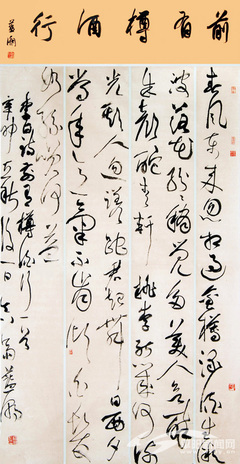 前有樽酒行
春風東来忽相過金樽渌酒生微
波落花紛紛稍覺多美人欲醉
朱顔酡青軒桃李能几何流
光欺人忽蹉跎君起舞日西夕
當年意氣不肯傾白髮
如絲歎何益
李白詩前有樽酒行一首